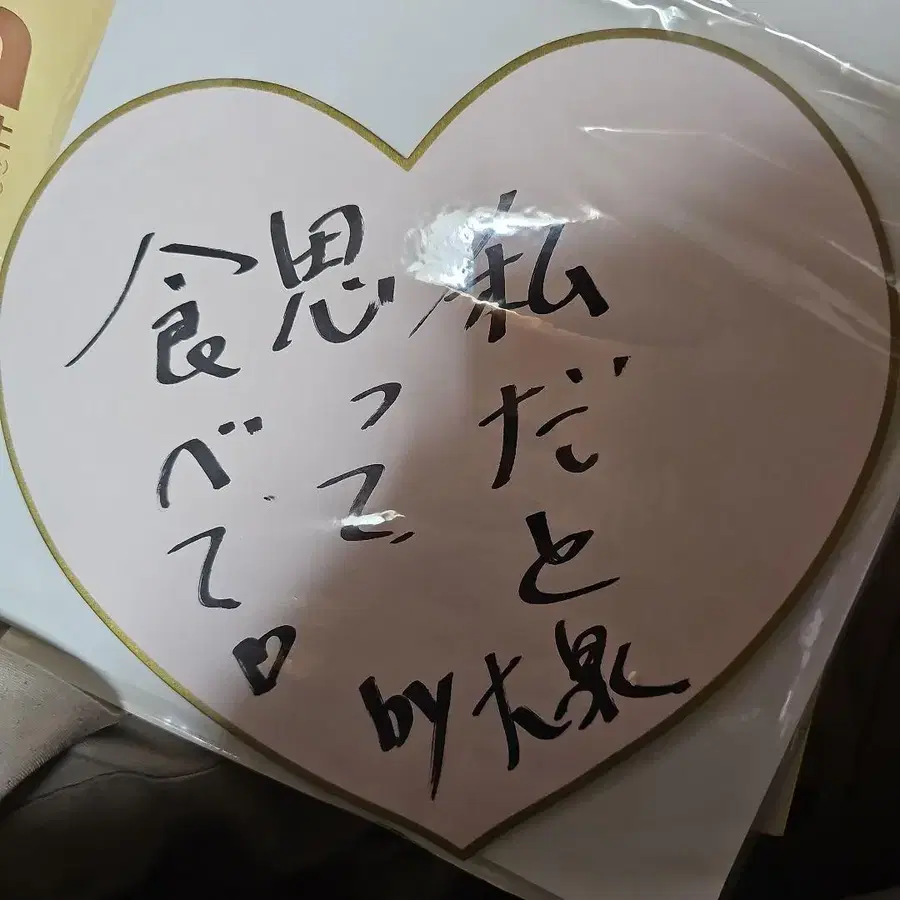 私だと
思って
食べて♡
by大泉